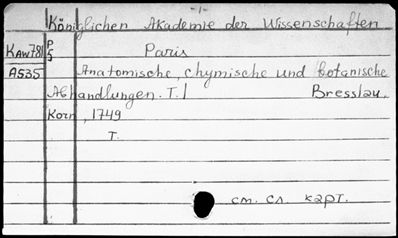 -1-
Königlichen Akademie der Wissenschaften
KAW781 P5 Paris
A535 Anatomische, chymische und botanische
Abhandlungen. T.1 Bresslau,
Korn, 1749
T.
см. сл. карт.